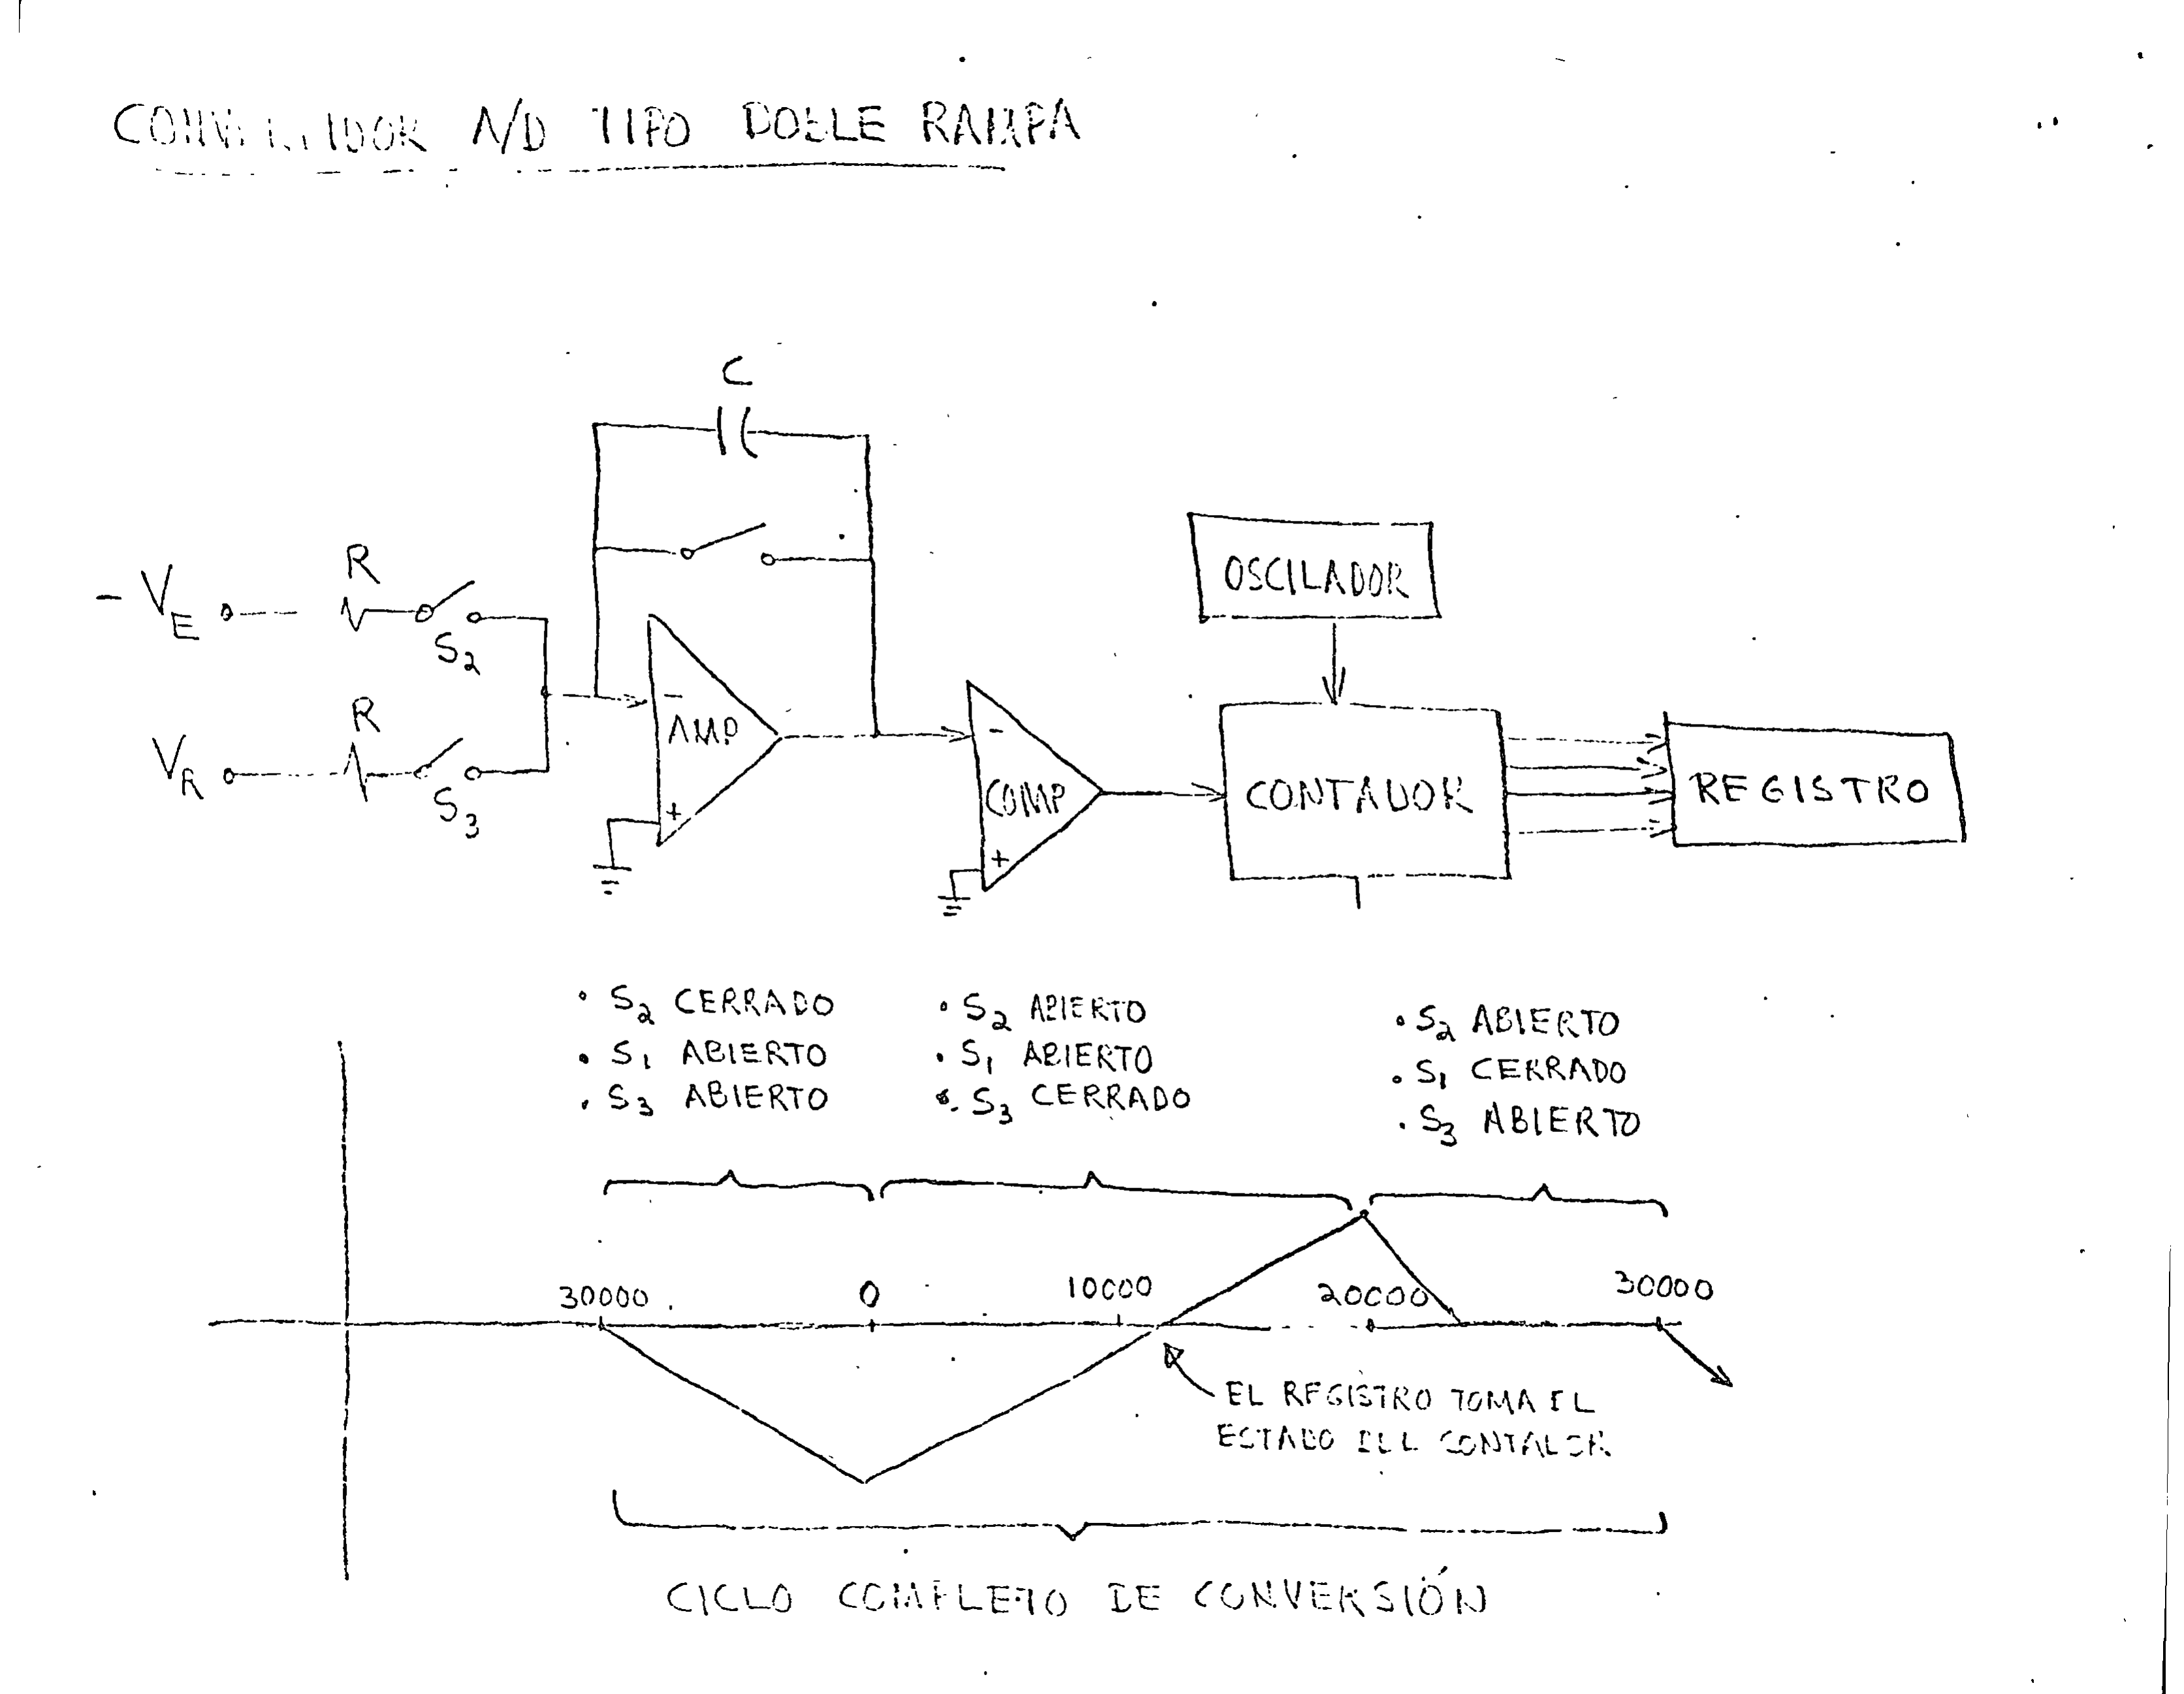 CONVERTIDOR A/D TIPO DOBLE RAMPA
C
R
- VE
S2
OSCILADOR
R
VR
S3
-
AMP
+
-
COMP
+
CONTADOR
REGISTRO
• S2 CERRADO
• S1 ABIERTO
• S3 ABIERTO
• S2 ABIERTO
• S1 ABIERTO
• S3 CERRADO
• S2 ABIERTO
• S1 CERRADO
• S3 ABIERTO
30000
0
10000
20000
30000
EL REGISTRO TOMA EL
ESTADO DEL CONTADOR
CICLO COMPLETO DE CONVERSIÓN